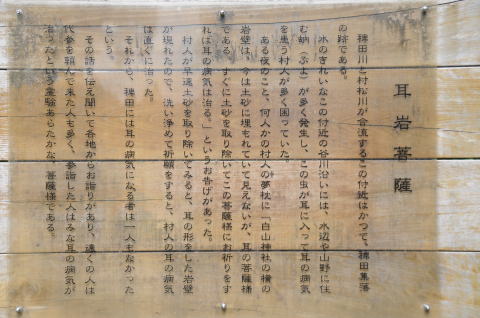 耳岩菩薩
稗田川と村松川が合流するこの付近はかつて、稗田集落
の跡である。
水のきれいなこの付近の谷川沿いには、水辺や山野に住
む蚋(ぶよ)が多く発生し、この虫が耳に入って耳の病気
を患う村人が多く困っていた。
ある夜のこと、何人かの村人の夢枕に「白山神社の横の
岩壁は、今は土砂に埋もれていて見えないが、耳の菩薩様
である。すぐに土砂を取り除いてこの菩薩様にお祈りをす
れば耳の病気は治る。」というお告げがあった。
村人が早速土砂を取り除いてみると、耳の形をした岩壁
が現れたので、洗い浄めて祈願をすると、村人の耳の病気
は直ぐに治った。
それから、稗田には耳の病気になる者は一人もなかった
という。
その話を伝え聞いて各地からお詣りがあり、遠くの人は
代参を頼んで来た人も多く、参詣した人はみな耳の病気が
治ったという霊験あらたかな、菩薩様である。